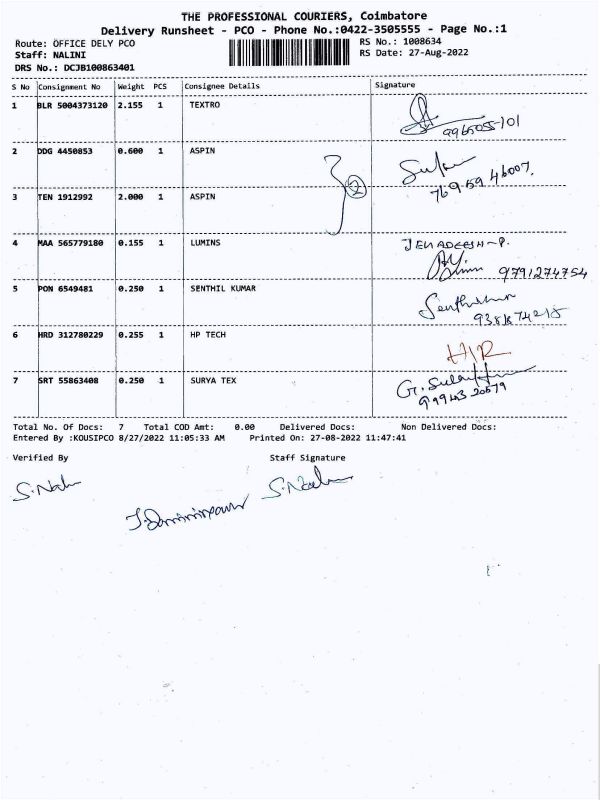 THE PROFESSIONAL COURIERS, Coimbatore
Delivery Runsheet - PCO - Phone No.:0422-3505555 - Page No.:1
Route: OFFICE DELY PCO
Staff: NALINI
DRS No.: DCJB100863401
RS No.: 1008634
RS Date: 27-Aug-2022
S No Consignment No Weight PCS Consignee Details Signature
1 BLR 5004373120 2.155 1 TEXTRO
2 DDG 4450853 0.600 1 ASPIN
2
76959 46007.
3 TEN 1912992 2.000 1 ASPIN
4 MAA 565779180 0.155 1 LUMINS
9791274754
5 PON 6549481 0.250 1 SENTHIL KUMAR
6 HRD 312780229 0.255 1 HP TECH
H/R
7 SRT 55863408 0.250 1 SURYA TEX
99943 20579
Total No. Of Docs: 7 Total COD Amt: 0.00 Delivered Docs: Non Delivered Docs:
Entered By :KOUSIPCO 8/27/2022 11:05:33 AM Printed On: 27-08-2022 11:47:41
Verified By Staff Signature